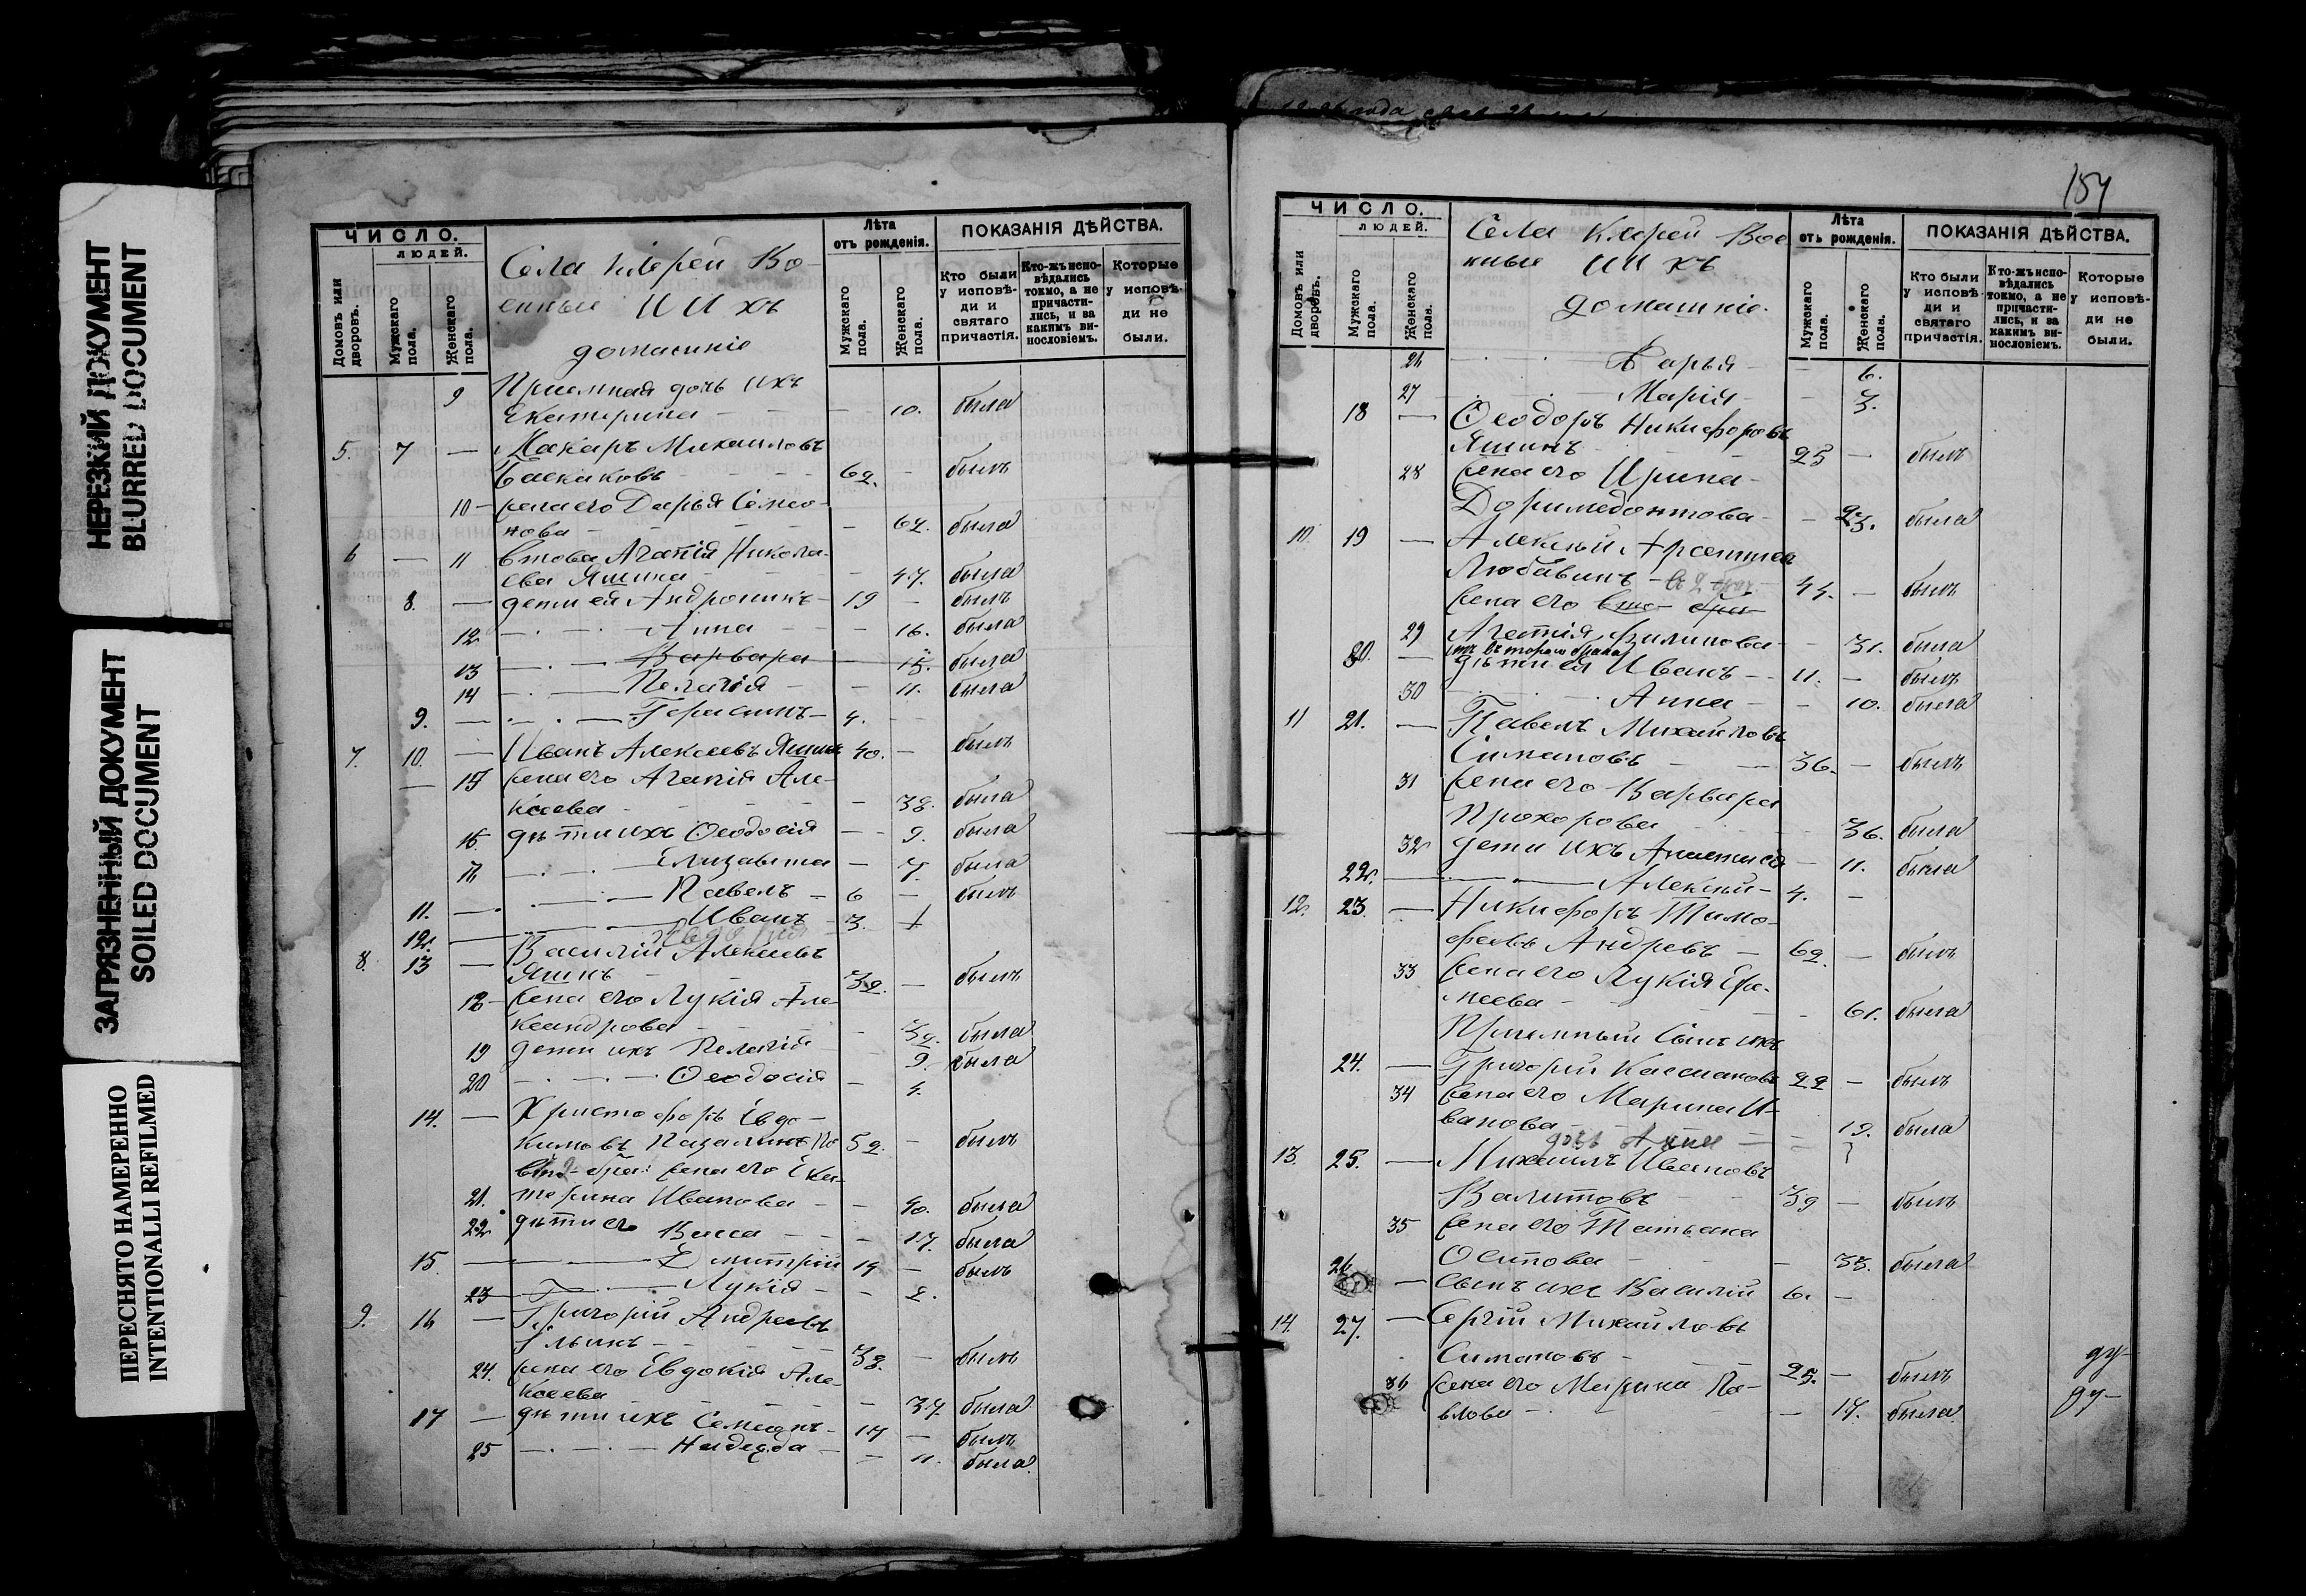 НЕРЕЗКИЙ ДОКУМЕНТ
BLURRED DOCUMENT
ЗАГРЯЗНЕННЫЙ ДОКУМЕНТ
SOILED DOCUMENT
ПЕРЕСНЯТО НАМЕРЕННО
INTENTIONALLI REFILMED
ЧИСЛО.
ЛЮДЕЙ.
Домовъ или дворовъ.
Мужскаго пола.
Женскаго пола.
Села Клерей Во-
енные И И хъ
домашніе
Лѣта отъ рожденія.
Мужскаго пола.
Женскаго пола.
ПОКАЗАНІЯ ДѢЙСТВА.
Кто были у исповѣди и святаго причастія.
Кто-жъ исповѣдались токмо, а не причастились, и за какимъ винословіемъ.
Которые у исповѣди не были.
9 Приемная дочь ихъ
Екатерина — — 10. была
5. 7 — Макаръ Михаиловъ
62. — былъ
10 — жена его Дарья Семео-
нова — 62. была
6 — 11 Вдова Агапія Никола-
ева Яшина — 47. была
8. — дети ея Андроникъ — 19 — былъ
12 — Анна — 16. была
13 — Варвара — 15. была
14 — Пелагія — 11. была
9. — Герасимъ — 4.
7. 10. — Иванъ Алексеевъ Яшинъ 40. — былъ
15 жена его Агапія Але-
ксеева — 38. была
16 дѣти ихъ Ѳеодосія — 9. была
17 — Елизавета — 7. была
11. — Павелъ — 6 — былъ
12. — Иванъ — 3. +
8. 13 — Василій Алексеевъ
Яшинъ 32. — былъ
18 — жена его Лукія Але-
ксандрова — 32. была
19 дети ихъ Пелагія 9. была
20 — Ѳеодосія — 4.
14. — Христофоръ Евдо-
кимовъ 52. — былъ
бра: жена его Ека-
21. терина Иванова — 40. была
22 дѣти его Васса — 17. была
15 — Дмитрій 19 — былъ
23 — Лукія — 2.
9. 16 — Григорій Андреевъ
Ильинъ — 38. — былъ
24. жена его Евдокія Але-
ксеева — 37. была
17 — дѣти ихъ Семионъ — 14 — былъ
25 — Надежда — 11. была.
154
ЧИСЛО.
ЛЮДЕЙ.
Домовъ или дворовъ.
Мужскаго пола.
Женскаго пола.
Села Клерей Вое
нные И И хъ
домашніе.
Лѣта отъ рожденія.
Мужскаго пола.
Женскаго пола.
ПОКАЗАНІЯ ДѢЙСТВА.
Кто были у исповѣди и святаго причастія.
Кто-жъ исповѣдались токмо, а не причастились, и за какимъ винословіемъ.
Которые у исповѣди не были.
26 Дарья — 6.
27 Марія — 3.
18 — Ѳеодоръ Никифоровъ
Яшинъ 25 — былъ
28 жена его Ирина
Доримедонтова — 23. была
10. 19 — Алексѣй
Любавинъ 44. — былъ
жена его
29 Агапія Филипова — 31. была
отъ втораго брака
20. — дѣти ея Иванъ — 11. — былъ
30 Анна — 10. была
11 21. — Павелъ Михайловъ
Симановъ — 36. — былъ
31 жена его Варвара
Прохорова 36. была
32 дети ихъ Анастасія 11. была
22. — Алексѣй — 4. —
12. 23. — Никифоръ Тимо-
феевъ Андреевъ — 62. — былъ
33 жена его Лукія Ефи-
меева — 61. была
Приемный Сынъ ихъ
24. — Григорій 22 — былъ
34 жена его Марина И-
ванова — 19. была
дочь Анна
13. 25. — Михаилъ Ивановъ
39 — былъ
35 жена его Татьяна
Осипова — 33. была
26 — сынъ ихъ Василій 6. —
14. 27. — Сергій Михайловъ
Симановъ 25. — былъ
36 жена его Марина Па-
влова — 17. была